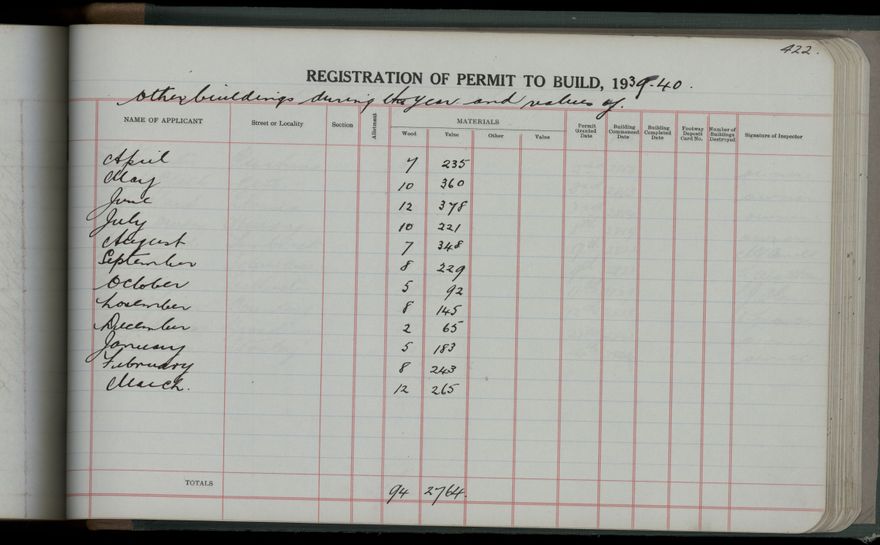 422.
REGISTRATION OF PERMIT TO BUILD, 1939-40.
Other buildings during the year and values of.
NAME OF APPLICANT Street or Locality Section Allotment MATERIALS Permit Granted Date Building Commenced Date Building Completed Date Footway Deposit Card No. Number of Buildings Destroyed Signature of Inspector
Wood Value Other Value
April 7 235
May 10 360
June 12 378
July 10 221
August 7 348
September 8 229
October 5 92
November 8 145
December 2 65
January 5 183
February 8 243
March. 12 265
TOTALS 94 2764.